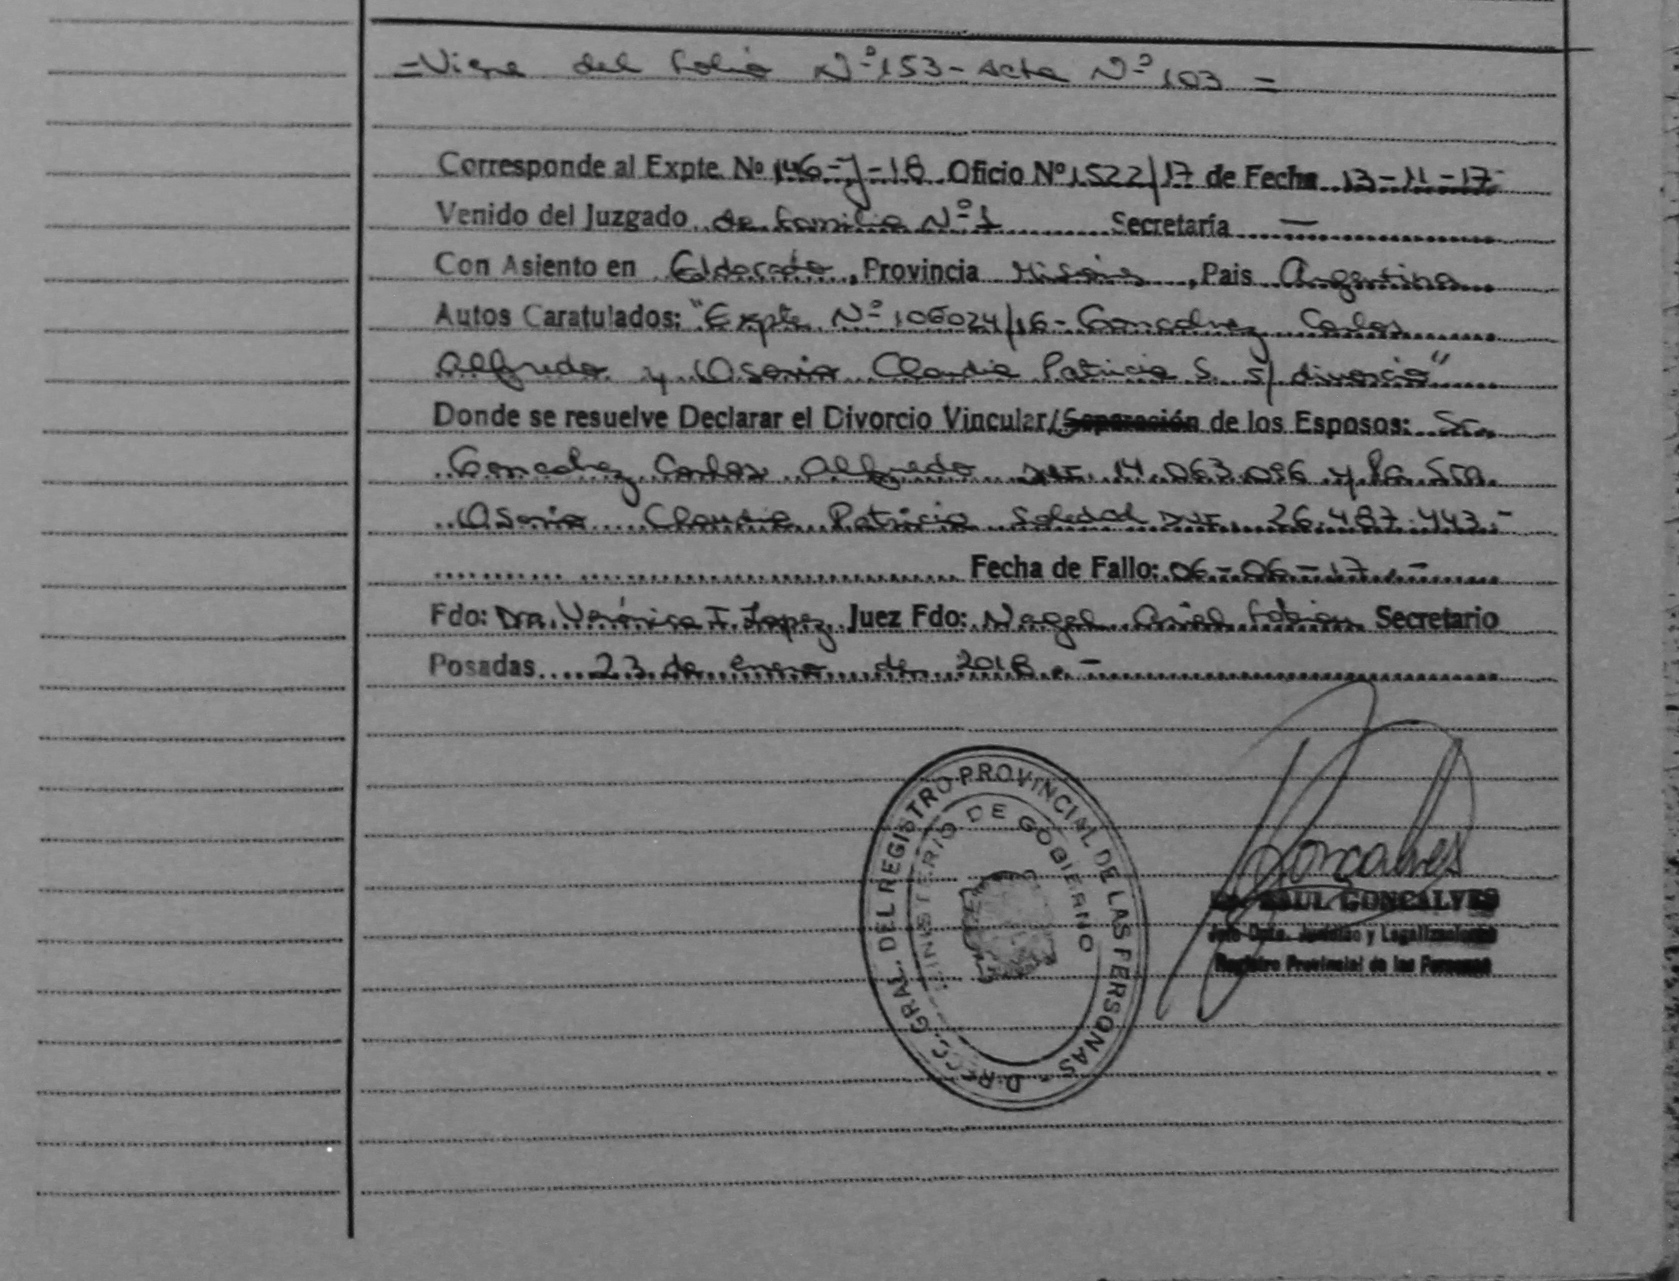 =Viene del folio Nº153-Acta Nº103=
Corresponde al Expte. Nº 146-J-18 Oficio Nº1522/17 de Fecha 13-11-17-
Venido del Juzgado de familia Nº1 Secretaría —
Con Asiento en Eldorado, Provincia Misiones, Pais Argentina
Autos Caratulados: "Expte. Nº 106024/16-Goncalvez Carlos
Alfredo y Osorio Claudia Patricia S. s/ divorcio"
Donde se resuelve Declarar el Divorcio Vincular/Separación de los Esposos: Sr.
Goncalvez Carlos Alfredo DNI. 14.063.096 y la Sra.
Osorio Claudia Patricia Soledad DNI. 26.487.443.-
Fecha de Fallo: 06-06-17.-
Fdo: Dra. Verónica I. Lopez Juez Fdo: Nagel Ariel Fabian Secretario
Posadas 23 de enero de 2018.-
DIRECC. GRAL. DEL REGISTRO PROVINCIAL DE LAS PERSONAS -
MINISTERIO DE GOBIERNO
Goncalves
RAUL GONCALVES
Jefe Dpto. Jurídico y Legalizaciones
Registro Provincial de las Personas